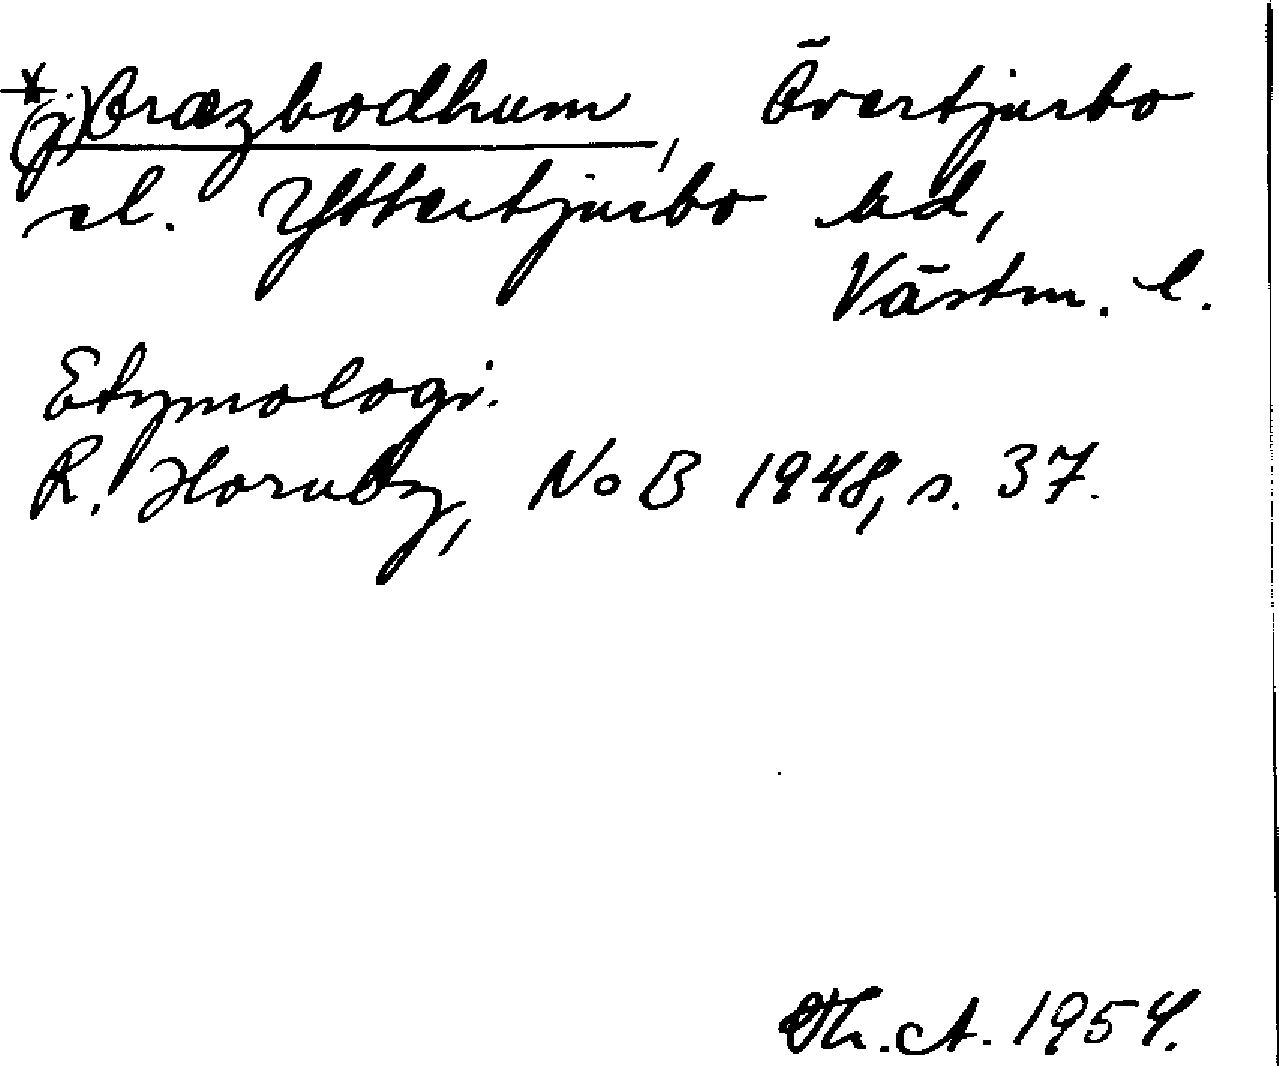 *(j) Bræzbodhum, Övertjurbo
el. Yttertjurbo hd,
Västm. l.
Etymologi.
R. Hornby, NoB 1948, s. 37.
Th. A. 1954.